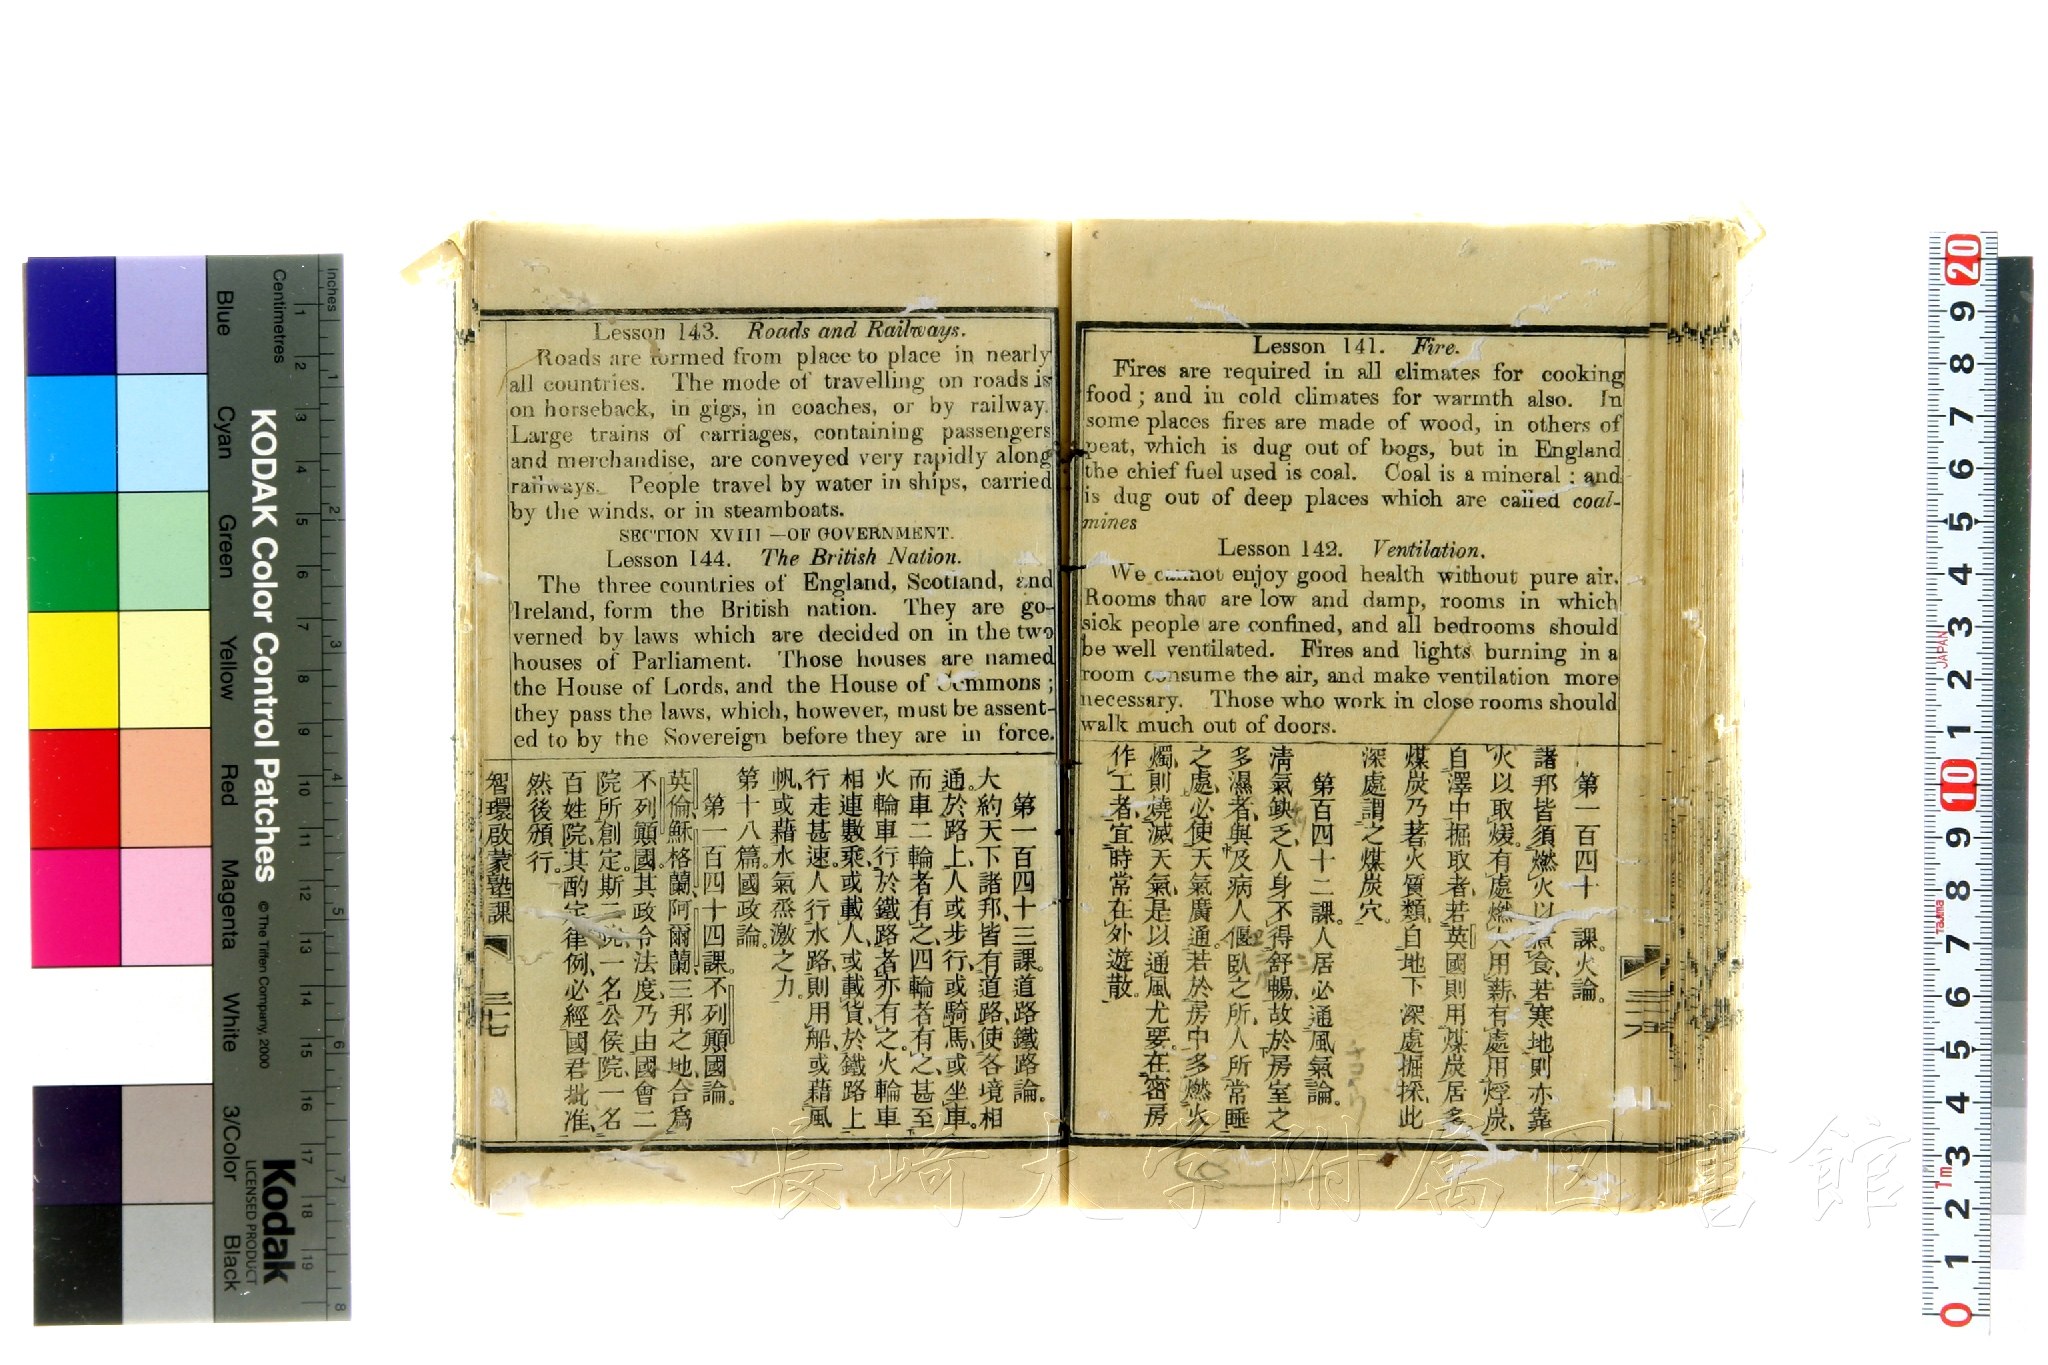 Lesson 141. Fire.
Fires are required in all climates for cooking
food; and in cold climates for warmth also. In
some places fires are made of wood, in others of
peat, which is dug out of bogs, but in England
the chief fuel used is coal. Coal is a mineral; and
is dug out of deep places which are called coal-
mines
Lesson 142. Ventilation.
We cannot enjoy good health without pure air.
Rooms that are low and damp, rooms in which
sick people are confined, and all bedrooms should
be well ventilated. Fires and lights burning in a
room consume the air, and make ventilation more
necessary. Those who work in close rooms should
walk much out of doors.
第一百四十 課。火論。
諸邦皆須燃火以煮食、若寒地則亦靠
火以取煖。有處燃火用薪、有處用烰炭、
自澤中掘取者、若英國則用煤炭居多
煤炭乃著火質類、自地下深處掘採、此
深處謂之煤炭穴。
第百四十二課。人居必通風氣論。
淸氣缺乏、人身不得舒暢、故於房室之
多濕者、與及病人偃臥之所、人所常睡
之處、必使天氣廣通。若於房中多燃火
燭、則燒滅天氣、是以通風尤要。在密房
作工者、宜時常在外遊散。
Lesson 143. Roads and Railways.
Roads are formed from place to place in nearly
all countries. The mode of travelling on roads is
on horseback, in gigs, in coaches, or by railway.
Large trains of carriages, containing passengers
and merchandise, are conveyed very rapidly along
railways. People travel by water in ships, carried
by the winds, or in steamboats.
SECTION XVIII —OF GOVERNMENT.
Lesson 144. The British Nation.
The three countries of England, Scotland, and
Ireland, form the British nation. They are go-
verned by laws which are decided on in the two
houses of Parliament. Those houses are named
the House of Lords, and the House of Commons;
they pass the laws, which, however, must be assent-
ed to by the Sovereign before they are in force.
第一百四十三課。道路鐵路論。
大約天下諸邦、皆有道路、使各境相
通。於路上、人或步行、或騎馬、或坐車。
而車二輪者有之、四輪者有之、甚至
火輪車行於鐵路者亦有之。火輪車
相連數乘、或載人、或載貨、於鐵路上
行走甚速。人行水路、則用船、或藉風
帆、或藉水氣烝激之力。
第十八篇。國政論。
第一百四十四課。不列顚國論。
英倫、穌格蘭、阿爾蘭、三邦之地、合爲
不列顚國。其政令法度、乃由國會二
院所創定。斯二院、一名公侯院、一名
百姓院、其酌定律例、必經國君批准、
然後頒行。
智環啟蒙塾課 三十七
KODAK Color Control Patches
© The Tiffen Company, 2000
Kodak
LICENSED PRODUCT
Inches
Centimetres
Blue
Cyan
Green
Yellow
Red
Magenta
White
3/Color
Black
JAPAN
Tajima
1m
長崎大学附属図書館